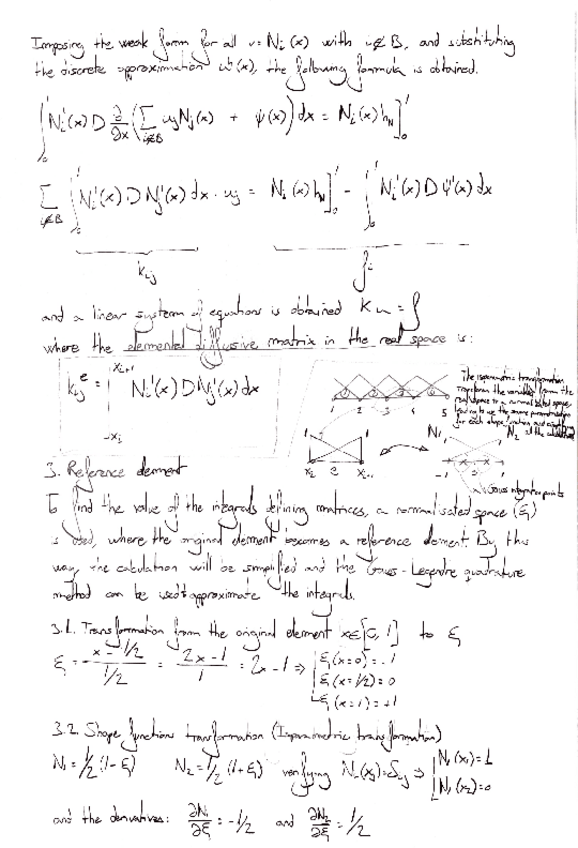 Imposing the weak form for all v = Ni(x) with i∉B, and substituting
the discrete approximation uʰ(x), the following formula is obtained.
∫₀¹ Ni'(x) D ∂/∂x (Σ_{j∉B} uj Nj(x) + ψ(x)) dx = Ni(x) hN]₀¹
Σ_{j∉B} ∫₀¹ Ni'(x) D Nj'(x) dx · uj = Ni(x) hN]₀¹ - ∫₀¹ Ni'(x) D ψ'(x) dx
Kij fi
and a linear system of equations is obtained K u = f
where the elemental diffusive matrix in the real space is:
kij^e = ∫_{xi}^{xi+1} Ni'(x) D Nj'(x) dx
The isoparametric transformation
transform the variables from the
real space to a normalisated space
for each shape function
1 2 3 4 5
1 1 N1 N2
x2 e xi+1 -1 1
x: Gauss integration points
3. Reference element
To find the value of the integrals defining matrices, a normalisated space (ξ)
is used, where the original element becomes a reference element. By this
way, the calculation will be simplified and the Gauss-Legendre quadrature
method can be used to approximate the integrals.
3.1. Transformation from the original element x∈[0,1] to ξ
ξ = (x - 1/2)/(1/2) = (2x-1)/1 = 2x-1 ⇒ ξ(x=0) = -1
ξ(x=1/2) = 0
ξ(x=1) = +1
3.2. Shape functions transformation (Isoparametric transformation)
N1 = 1/2 (1-ξ) N2 = 1/2 (1+ξ) verifying Ni(xj) = δij ⇒ N1(x1) = 1
N1(x2) = 0
and the derivatives: ∂N1/∂ξ = -1/2 and ∂N2/∂ξ = 1/2